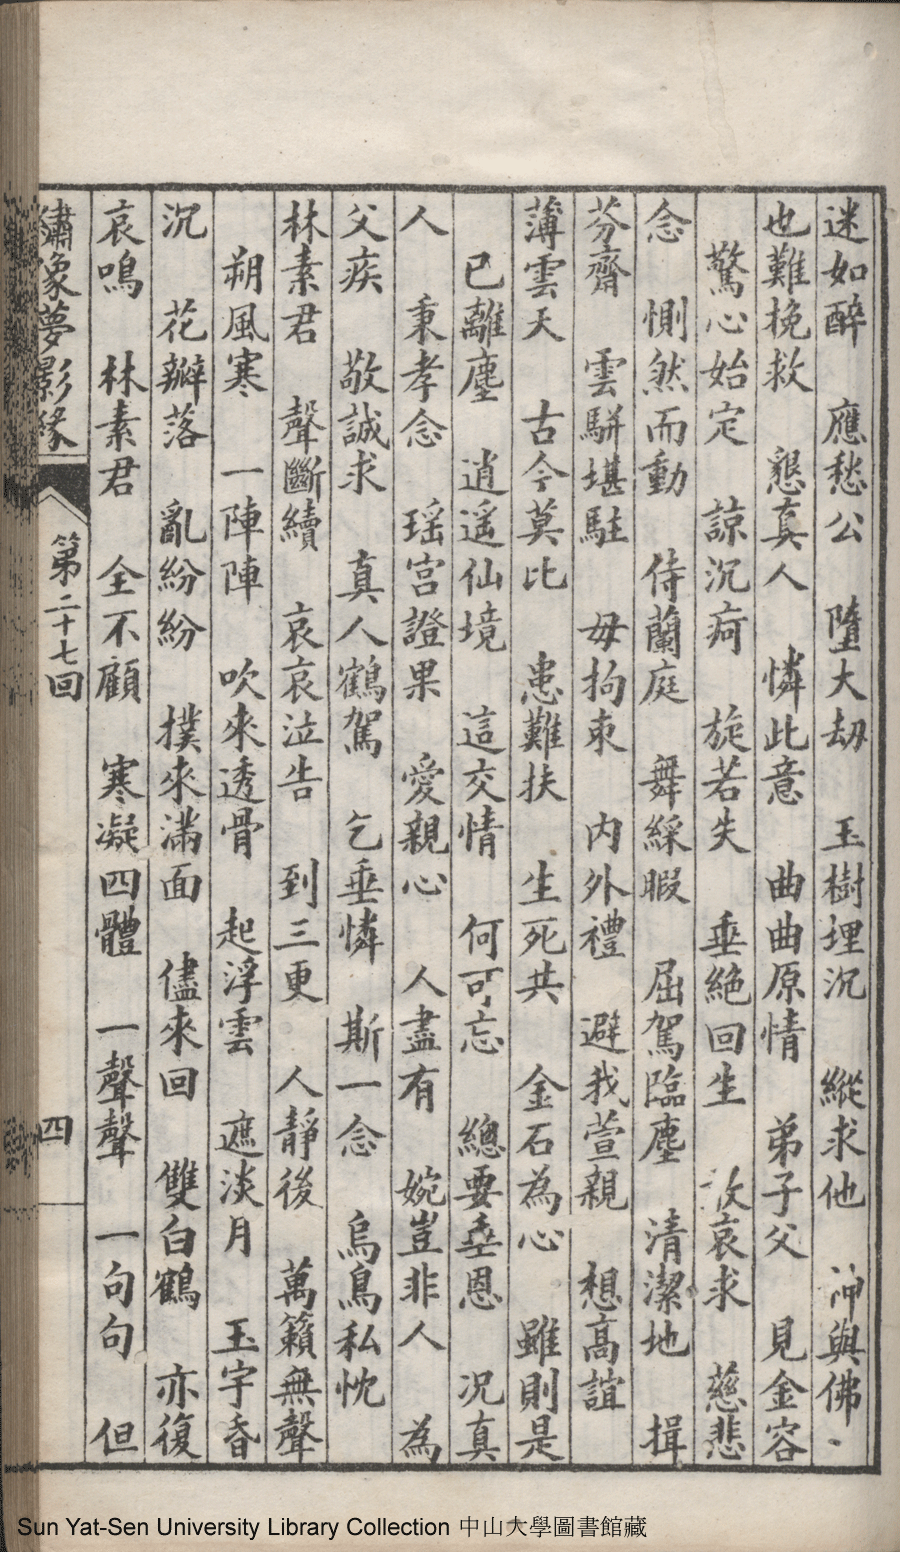 迷如醉　應愁公　墮大劫　玉樹埋沉　縱求他　神與佛、
也難挽救　懇真人　憐此意　曲曲原情　弟子父　見金容
驚心始定　諒沉疴　旋若失　垂絶回生　故哀求　慈悲
念　惻然而動　侍蘭庭　舞綵暇　屈駕臨塵　清潔地　揖
芬齋　雲駢堪駐　毋拘束　内外禮　避我萱親　想高誼
薄雲天　古今莫比　患難扶　生死共　金石為心　雖則是
已離塵　逍遥仙境　這交情　何可忘　總要垂恩　况真
人　秉孝念　瑶宫證果　愛親心　人盡有　婉豈非人　為
父疾　敬誠求　真人鶴駕　乞垂憐　斯一念　烏鳥私忱
林素君　聲斷續　哀哀泣告　到三更　人靜後　萬籟無聲
朔風寒　一陣陣　吹來透骨　起浮雲　遮淡月　玉宇昏
沉　花瓣落　亂紛紛　撲來滿面　儘來回　雙白鶴　亦復
哀鳴　林素君　全不顧　寒凝四體　一聲聲　一句句　但
繡像夢影緣　第二十七回　四
Sun Yat-Sen University Library Collection 中山大學圖書館藏